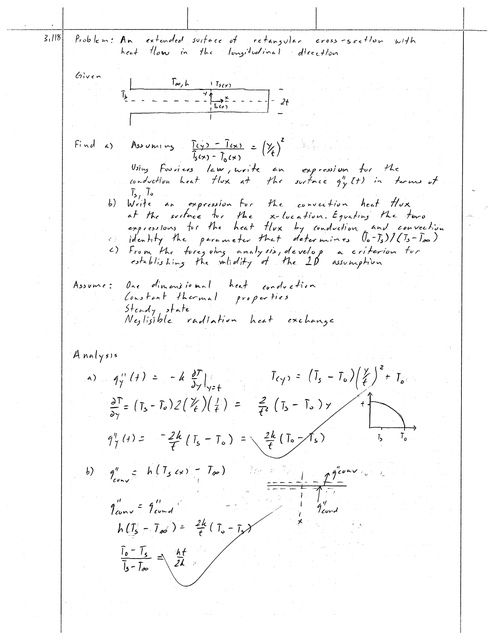 3.118 Problem: An extended surface of retangular cross-section with
heat flow in the longitudinal direction
Given
T∞, h
Ts(x)
Tb
y
x
To(x)
2t
Find a) Assuming (T(y) - To(x)) / (Ts(x) - To(x)) = (y/t)²
Using Fouriers law, write an expression for the
conduction heat flux at the surface q''y(t) in terms of
Ts, To
b) Write an expression for the convection heat flux
at the surface for the x-location. Equating the two
expressions for the heat flux by conduction and convection
identify the parameter that determines (To-Ts)/(Ts-T∞)
c) From the foregoing analysis, develop a criterion for
establishing the validity of the 1D assumption
Assume: One dimensional heat conduction
Constant thermal properties
Steady state
Negligible radiation heat exchange
Analysis
a) q''y(t) = -k ∂T/∂y |y=t T(y) = (Ts - To)(y/t)² + To
∂T/∂y = (Ts - To) 2(y/t)(1/t) = 2/t² (Ts - To) y
q''y(t) = -2k/t (Ts - To) = 2k/t (To - Ts)
t
Ts To
b) q''conv = h(Ts(x) - T∞)
q''conv
q''cond
x
q''conv = q''cond
h(Ts - T∞) = 2k/t (To - Ts)
(To - Ts) / (Ts - T∞) = ht/2k